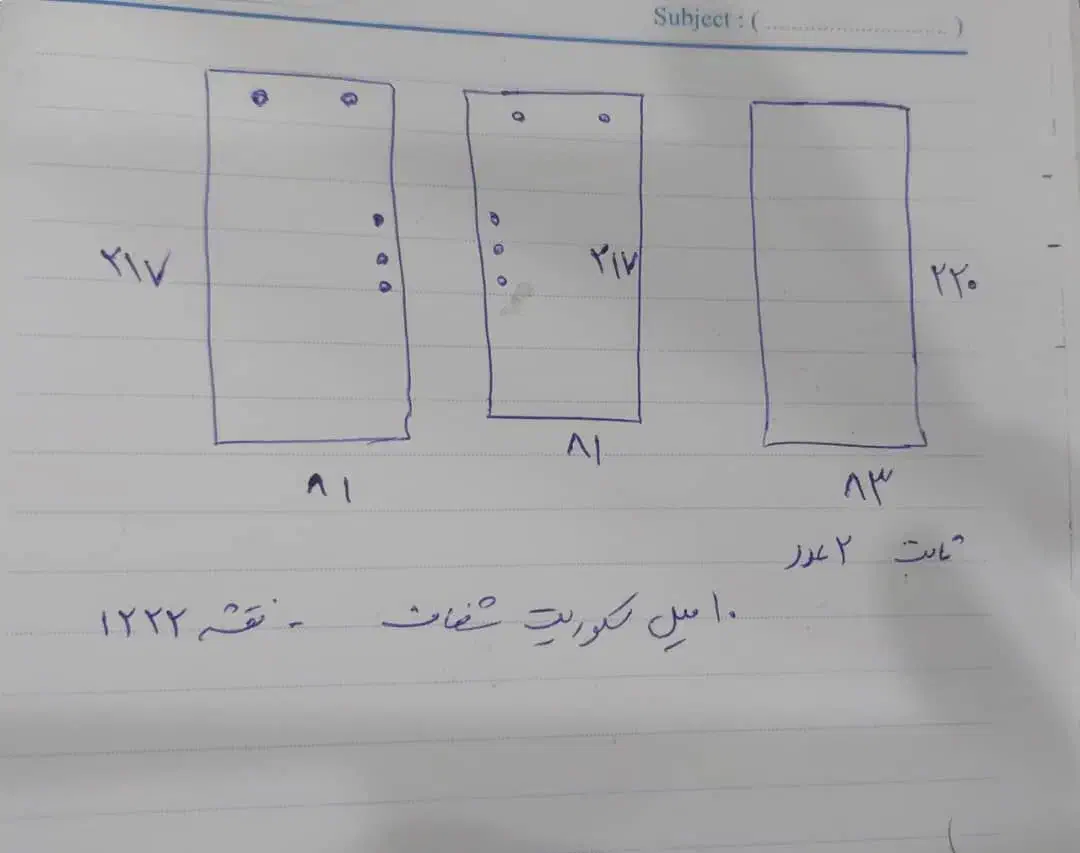 Subject : (.......................)
۲۱۷
۲۱۷
۲۲۰
۸۱
۸۱
۸۳
ثابت ۲ عدد
۱۰ میل سکوریت شفاف - نقشه ۱۲۲۲